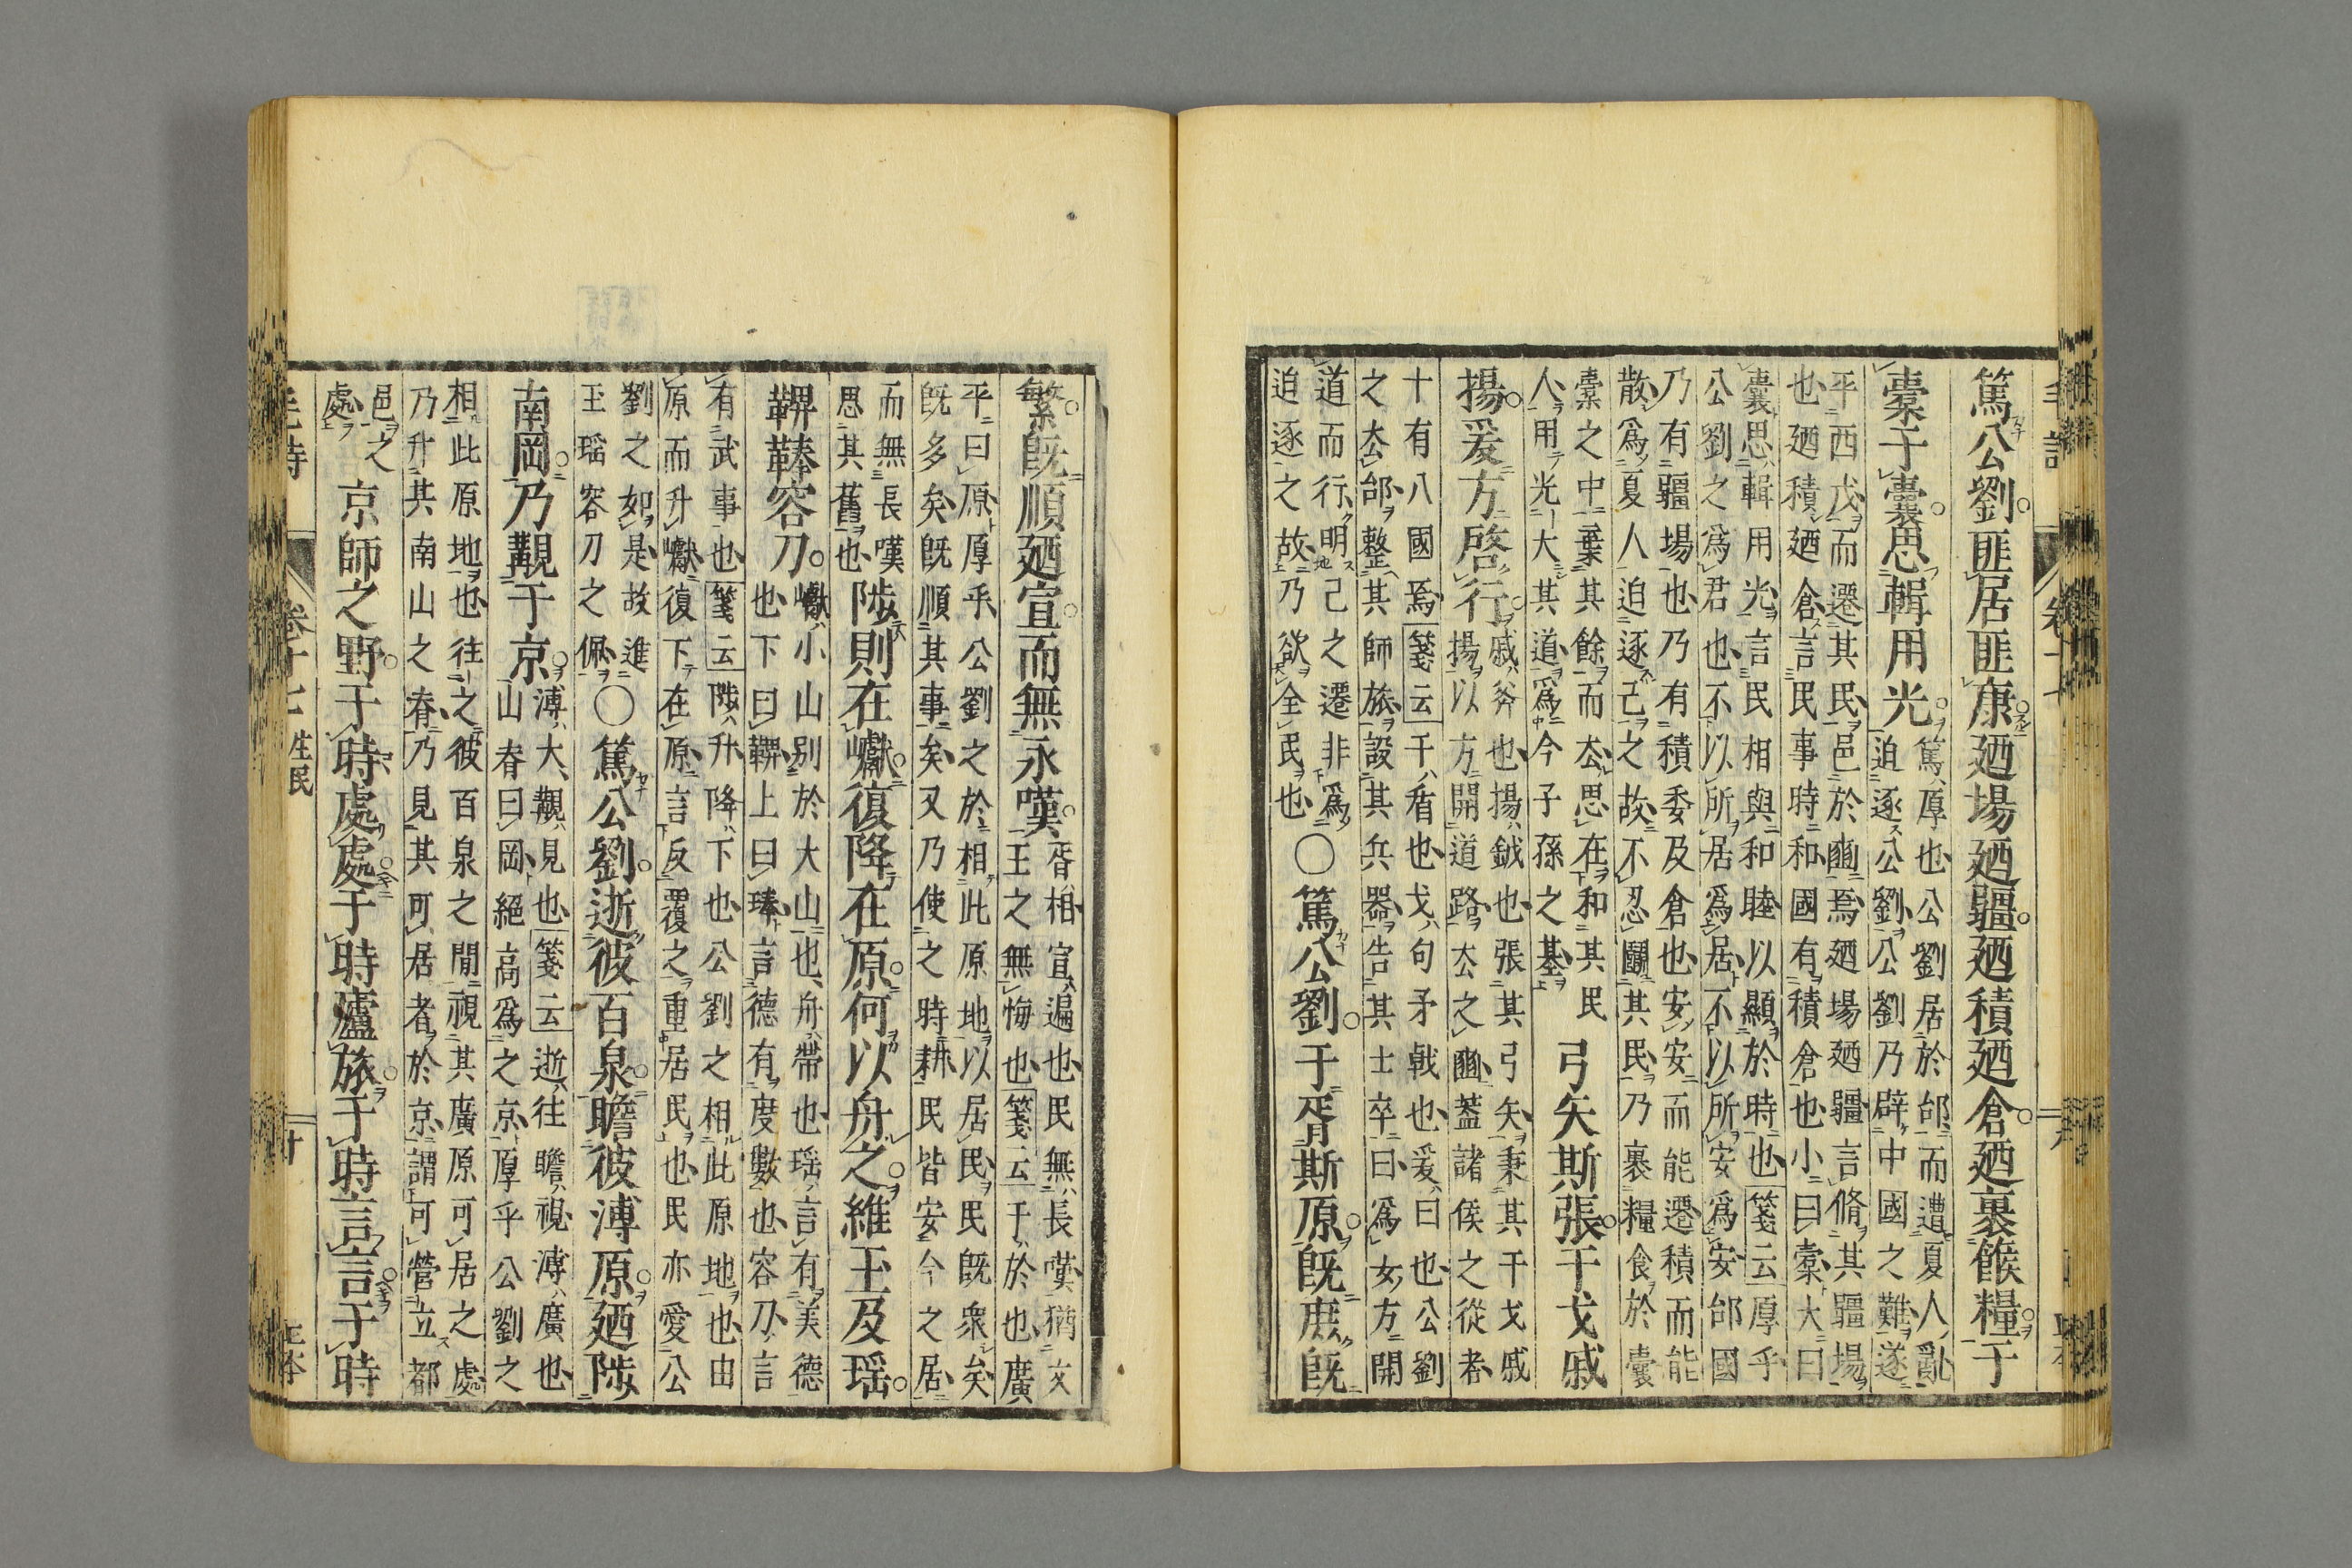 篤公劉匪居匪康廼場廼疆廼積廼倉廼裹餱糧于
橐于囊思輯用光
篤厚也公劉居於邰而遭夏人亂
迫逐公劉公劉乃辟中國之難遂
平西戎而遷其民邑於豳焉廼場廼疆言脩其疆場
也廼積廼倉言民事時和國有積倉也小曰橐大曰
囊思輯用光言民相與和睦以顯於時也箋云厚乎
公劉之爲君也不以所居爲居不以所安爲安邰國
乃有疆場也乃有積委及倉也安安而能遷積而能
散爲夏人迫逐己之故不忍鬭其民乃裹糧食於囊
橐之中棄其餘而去思在和其民
人用光大其道爲今子孫之基
弓矢斯張干戈戚
揚爰方啓行
戚斧也揚鉞也張其弓矢秉其干戈戚
揚以方開道路去之豳蓋諸侯之從者
十有八國焉箋云干盾也戈句矛戟也爰曰也公劉
之去邰整其師旅設其兵器告其士卒曰爲女方開
道而行明己之遷非爲
迫逐之故乃欲全民也
〇篤公劉于胥斯原既庶既
繁既順廼宣而無永嘆
胥相宣遍也民無長嘆猶文
王之無悔也箋云于於也廣
平曰原厚乎公劉之於相此原地以居民民既衆矣
既多矣既順其事矣又乃使之時耕民皆安今之居
而無長嘆
思其舊也
陟則在巘復降在原何以舟之維玉及瑤
鞞琫容刀
巘小山別於大山也舟帶也瑤言有美德
也下曰鞞上曰琫言德有度數也容刀言
有武事也箋云陟升降下也公劉之相此原地也由
原而升巘復下在原言反覆之重居民也民亦愛公
劉之如是故進
玉瑤容刀之佩
〇篤公劉逝彼百泉瞻彼溥原廼陟
南岡乃覯于京
溥大覯見也箋云逝往瞻視溥廣也
山脊曰岡絕高爲之京厚乎公劉之
相此原地也往之彼百泉之閒視其廣原可居之處
乃升其南山之脊乃見其可居者於京謂可營立都
邑之
處
京師之野于時處處于時廬旅于時言言于時
毛詩
卷十七 生民
十